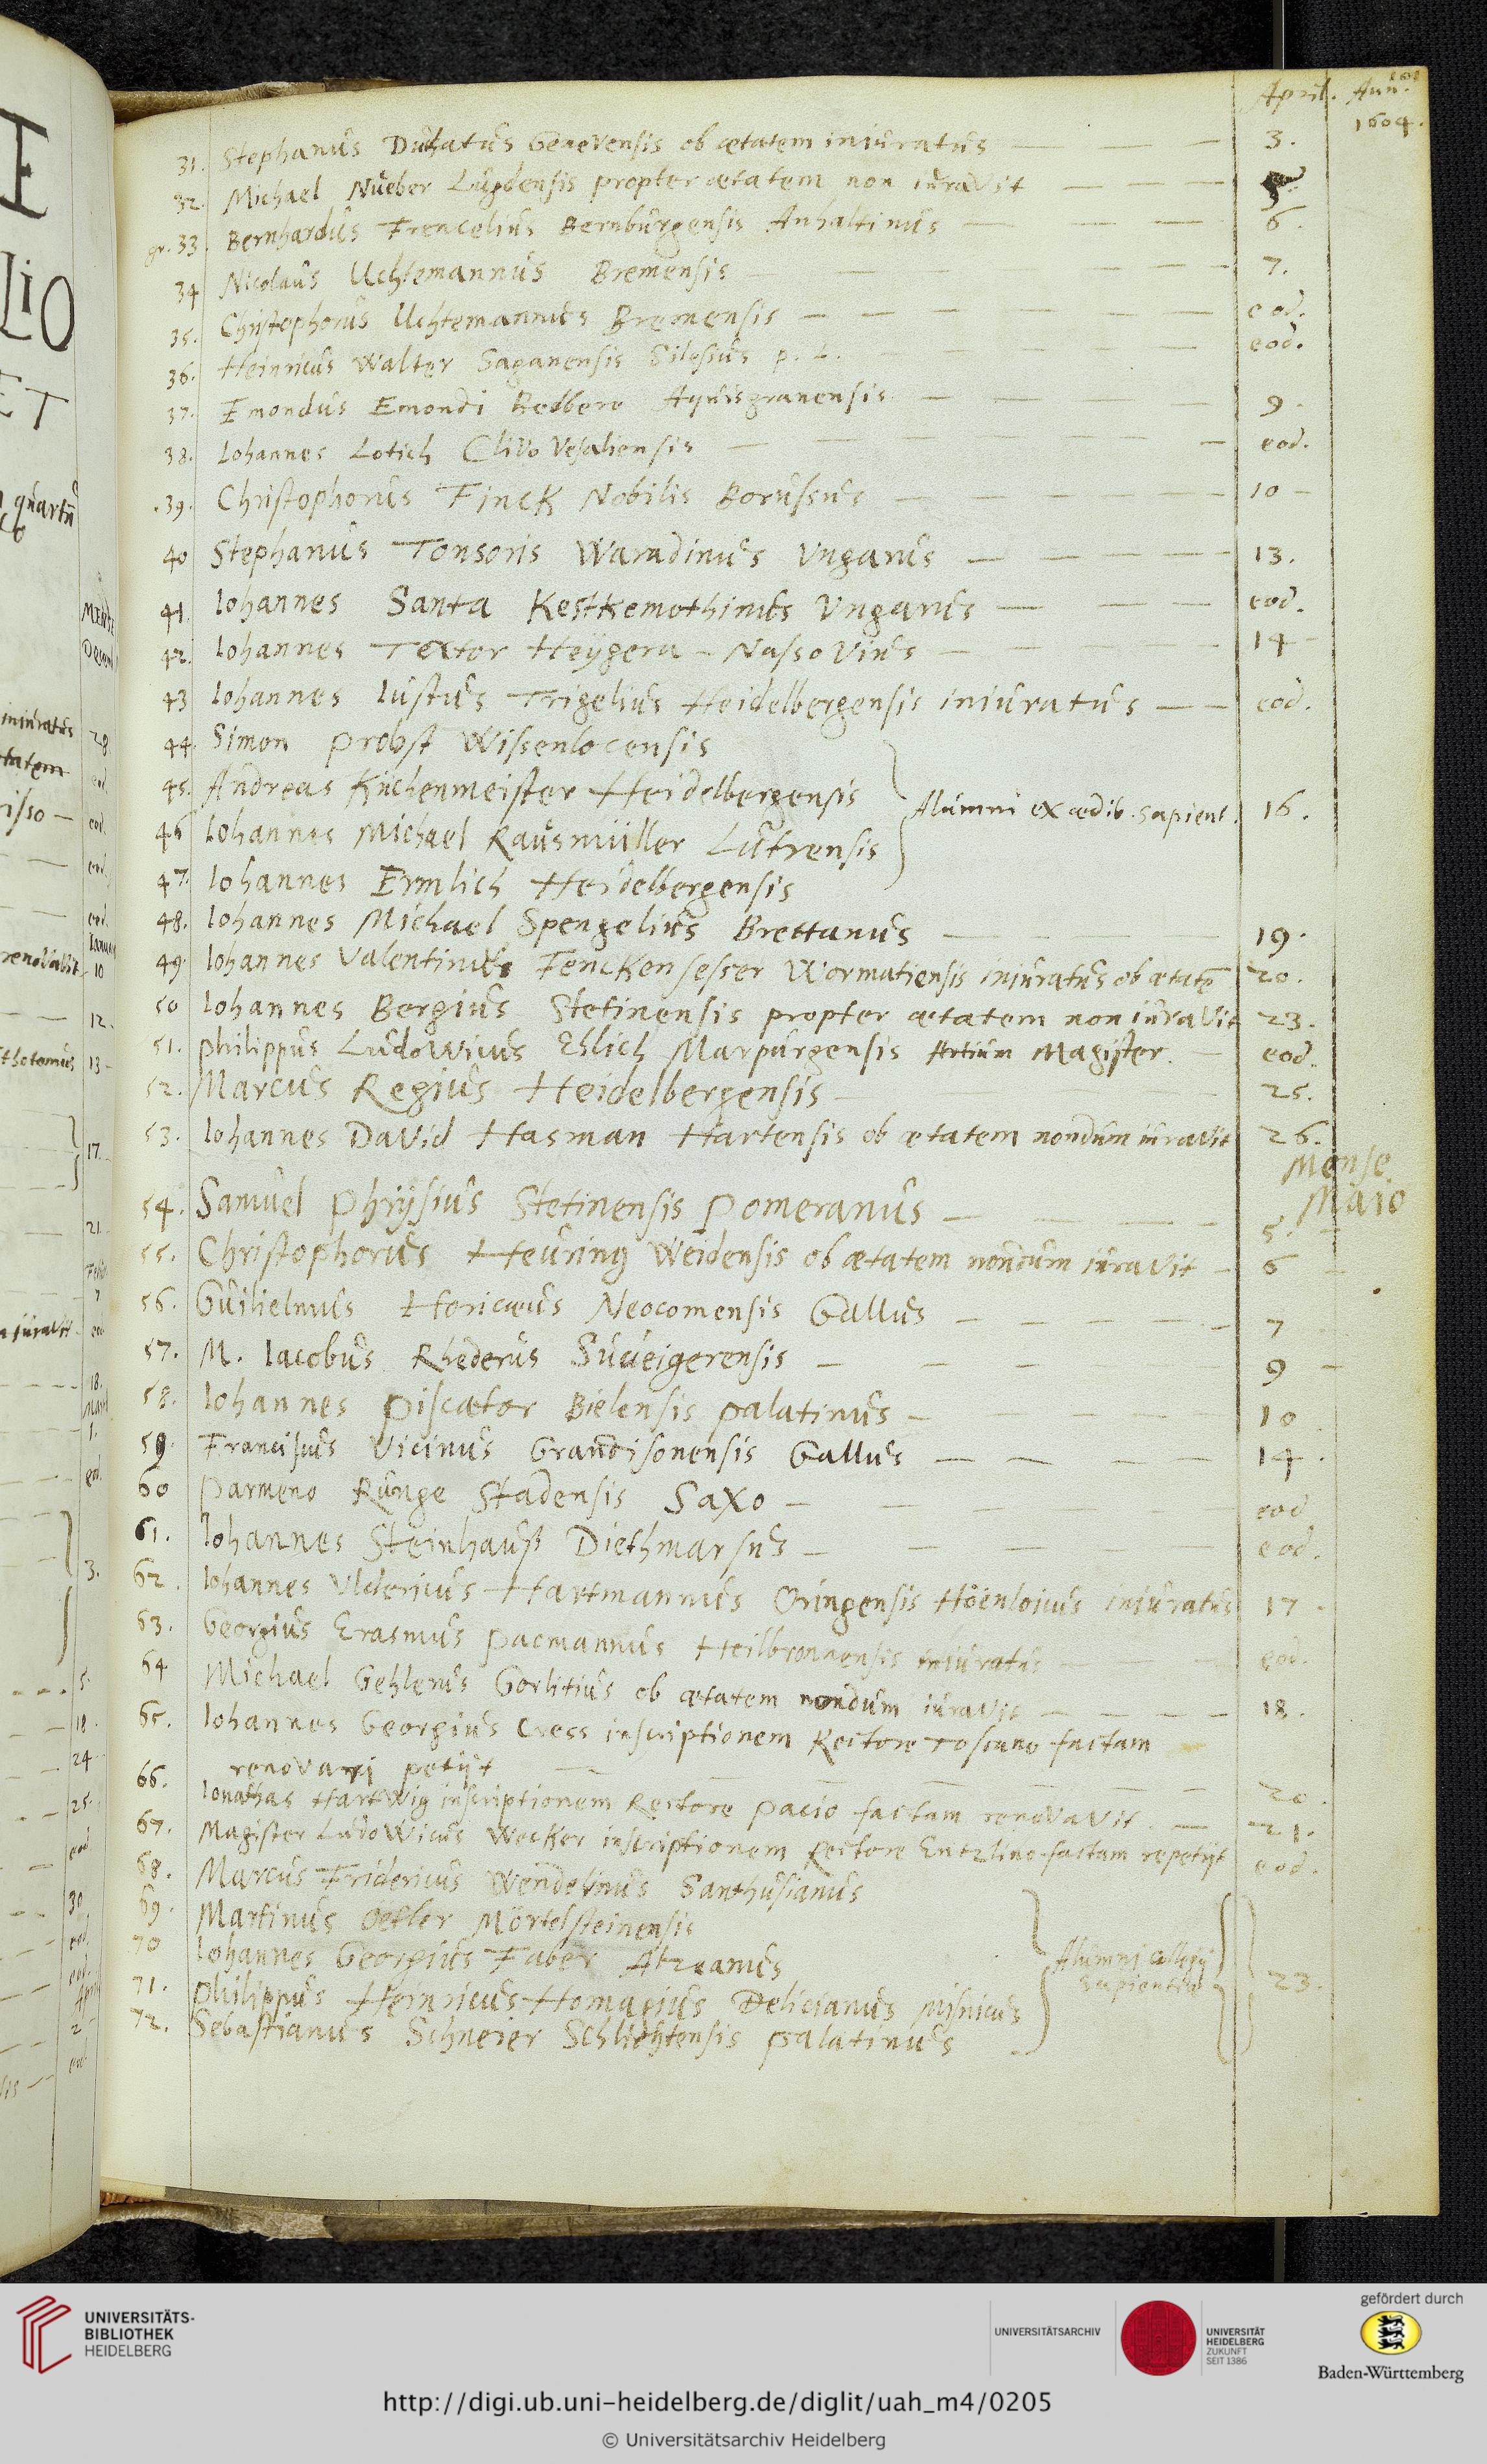 April. Ann.
1604.
31. Stephanus Ducatus Genevensis ob ætatem iniuratus 3.
32. Michael Nueber Lugdensis propter ætatem non iuravit 5.
gr. 33. Bernhardus Frencelius Bernburgensis Anhaltinus 6.
34 Nicolaus Uchtemannus Bremensis 7.
35. Christophorus Uchtemannus Bremensis eod.
36. Heinricus Walter Saganensis Silesius p. L. eod.
37. Emondus Emondi Bedbero Aquisgranensis 9.
38. Iohannes Lotich Clivo Vesaliensis eod.
39. Christophorus Finck Nobilis Borussus 10
40 Stephanus Tonsoris Waradinus Ungarus 13.
41. Iohannes Santa Keskemethinus Ungarus eod.
42. Iohannes Textor Heygera-Nassovius 14
43 Iohannes Iustus Trigelius Heidelbergensis iniuratus eod.
44. Simon Probst Wissenlocensis
45. Andreas Küchenmeister Heidelbergensis
Alumni ex ædib. sapient. 16.
46 Iohannes Michael Rausmüller Lutrensis
47. Iohannes Ermlich Heidelbergensis
48. Iohannes Michael Spengelius Brettanus 19.
49. Iohannes Valentinus Fenckensesser Wormatiensis iniuratus ob ætatē 20.
50 Iohannes Bergius Stetinensis propter ætatem non iuravit 23.
51. Philippus Ludowicus Ehlich Marpurgensis Artium Magister. eod.
52. Marcus Regius Heidelbergensis 25.
53. Iohannes David Hasman Hartensis ob ætatem nondum iuravit 26.
Mense
Maio
54. Samuel Phrysius Stetinensis Pomeranus 5.
55. Christophorus Heuring Weidensis ob ætatem nondum iuravit 6
56. Guilielmus Horicæus Neocomensis Gallus 7
57. M. Iacobus Rhederus Sueigerensis 9
58. Iohannes Piscator Bielensis Palatinus 10
59. Franciscus Vicinus Grandisonensis Gallus 14.
60 Parmeno Runge Stadensis Saxo eod
61. Iohannes Steinhauß Diethmarsus eod.
62. Iohannes Uldericus Hartmannus Oringensis Hoënloicus iniuratus 17
63. Georgius Erasmus Pacmannus Heilbronnensis iniuratus eod.
64 Michael Gehlerus Gorlitius ob ætatem nondum iuravit 18.
65. Iohannes Georgius Cress inscriptionem Rectore Toscano factam
renovari petijt 20.
66. Ionathas Hartwig inscriptionem Rectore Pacio factam renovavit. 21.
67. Magister Ludowicus Wecker inscriptionem Rectore Entzlino factam repetijt eod.
68. Marcus Fridericus Wendelinus Santhusianus
69. Martinus Oetler Mörtelsteinensis
70 Iohannes Georgius Faber Atzeanus
Alumni Collegij
Sapientiæ 23.
71. Philippus Heinricus Homagius Delicianus Misnicus
72. Sebastianus Schneier Schlichtensis Palatinus
UNIVERSITÄTS-
BIBLIOTHEK
HEIDELBERG
UNIVERSITÄTSARCHIV
UNIVERSITÄT
HEIDELBERG
ZUKUNFT
SEIT 1386
gefördert durch
Baden-Württemberg
http://digi.ub.uni-heidelberg.de/diglit/uah_m4/0205
© Universitätsarchiv Heidelberg